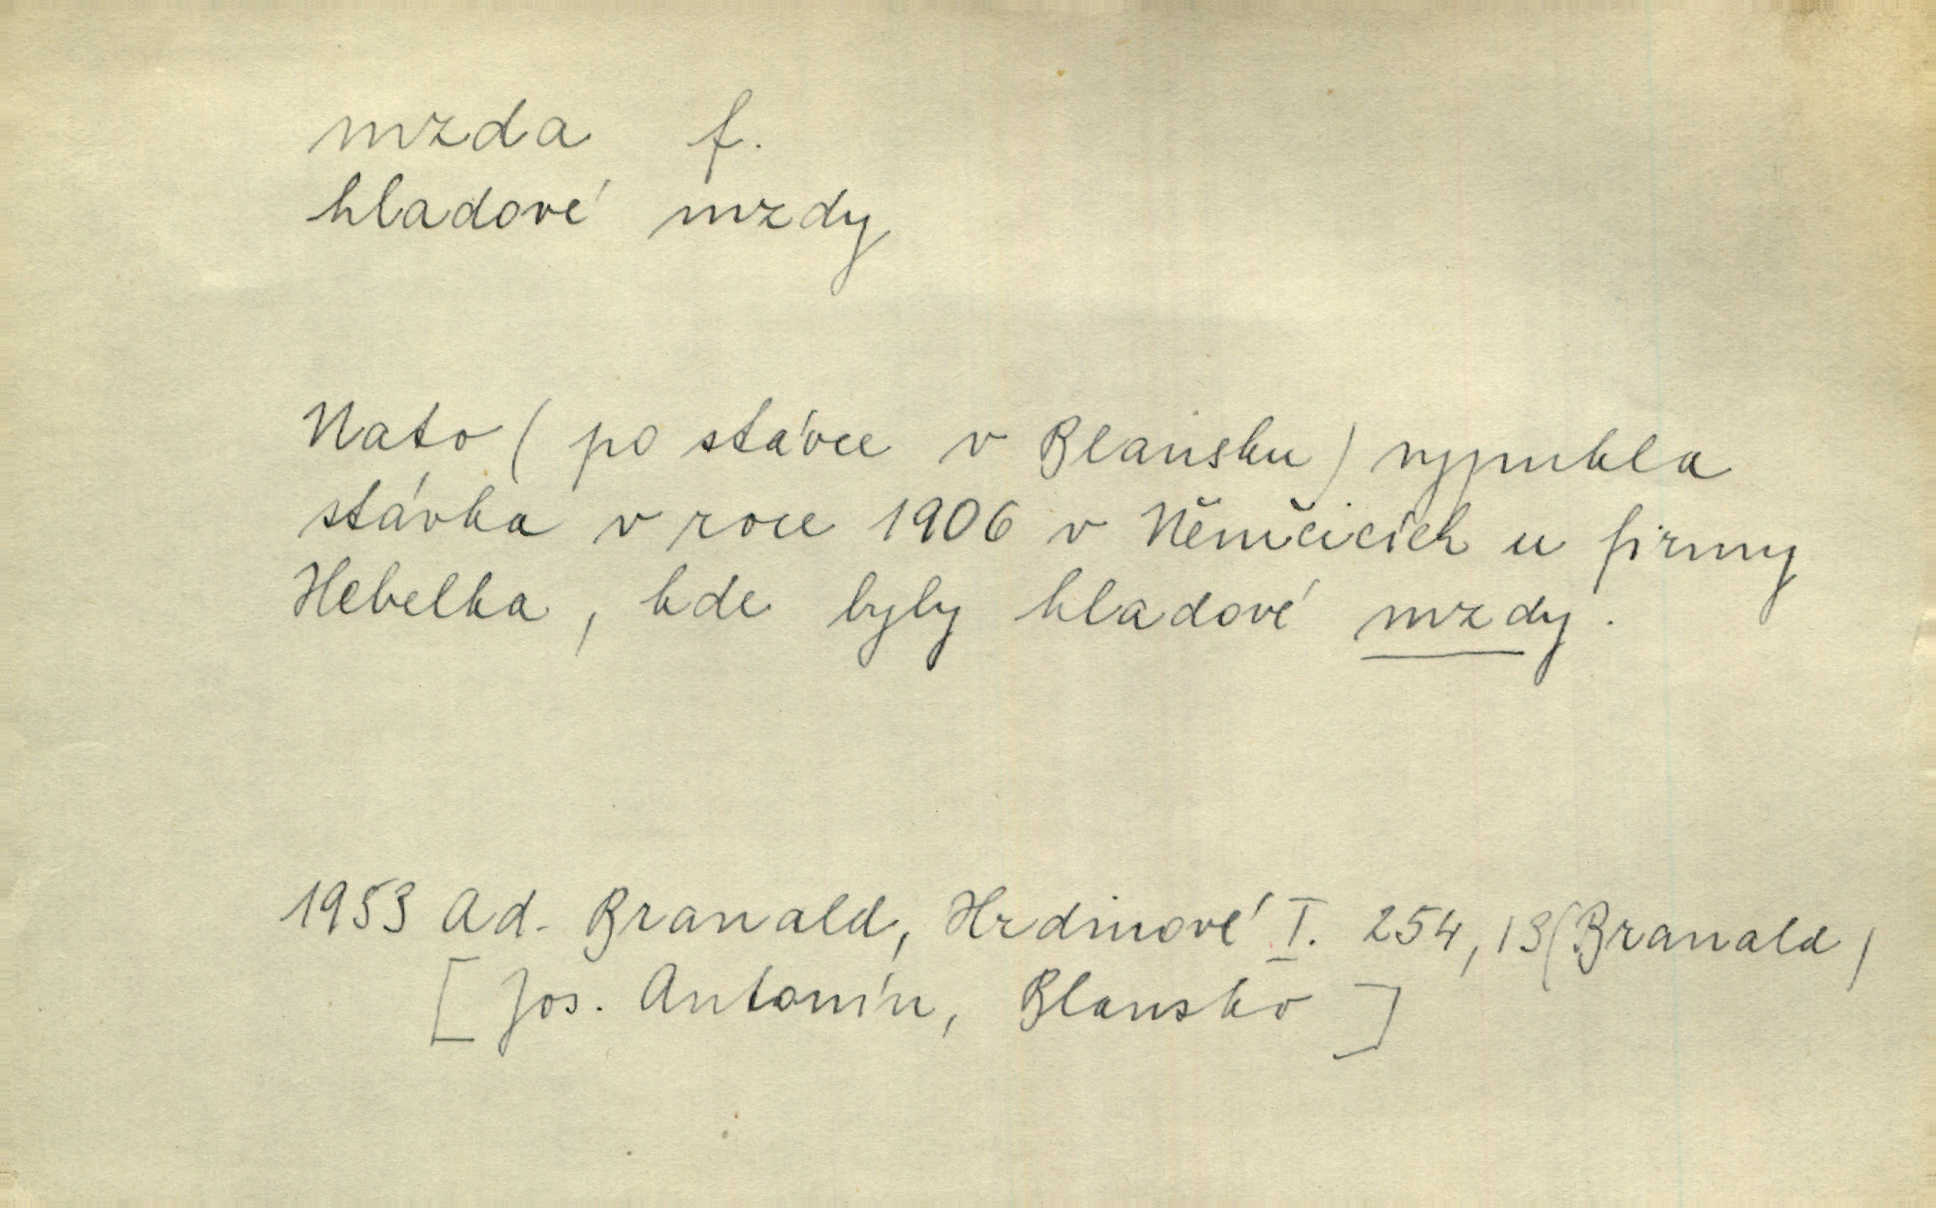 mzda f.
hladové mzdy
Nato (po stávce v Blansku) vypukla
stávka v roce 1906 v Němčicích u firmy
Hebelka, kde byly hladové mzdy.
1953 Ad. Branald, Hrdinové I. 254, 13 (Branald)
[Jos. Antonín, Blansko]